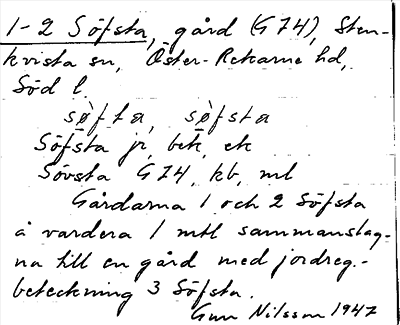 1-2 Söfsta, gård (G74), Sten-
kvista sn, Öster-Rekarne hd,
Söd l.
sø̀fta, sø̀fsta
Söfsta jr, bek, ek
Sövsta G74, kb, ml
Gårdarna 1 och 2 Söfsta
å vardera 1 mtl sammanslag-
na till en gård med jordreg.-
beteckning 3 Söfsta.
Gun Nilsson 1947